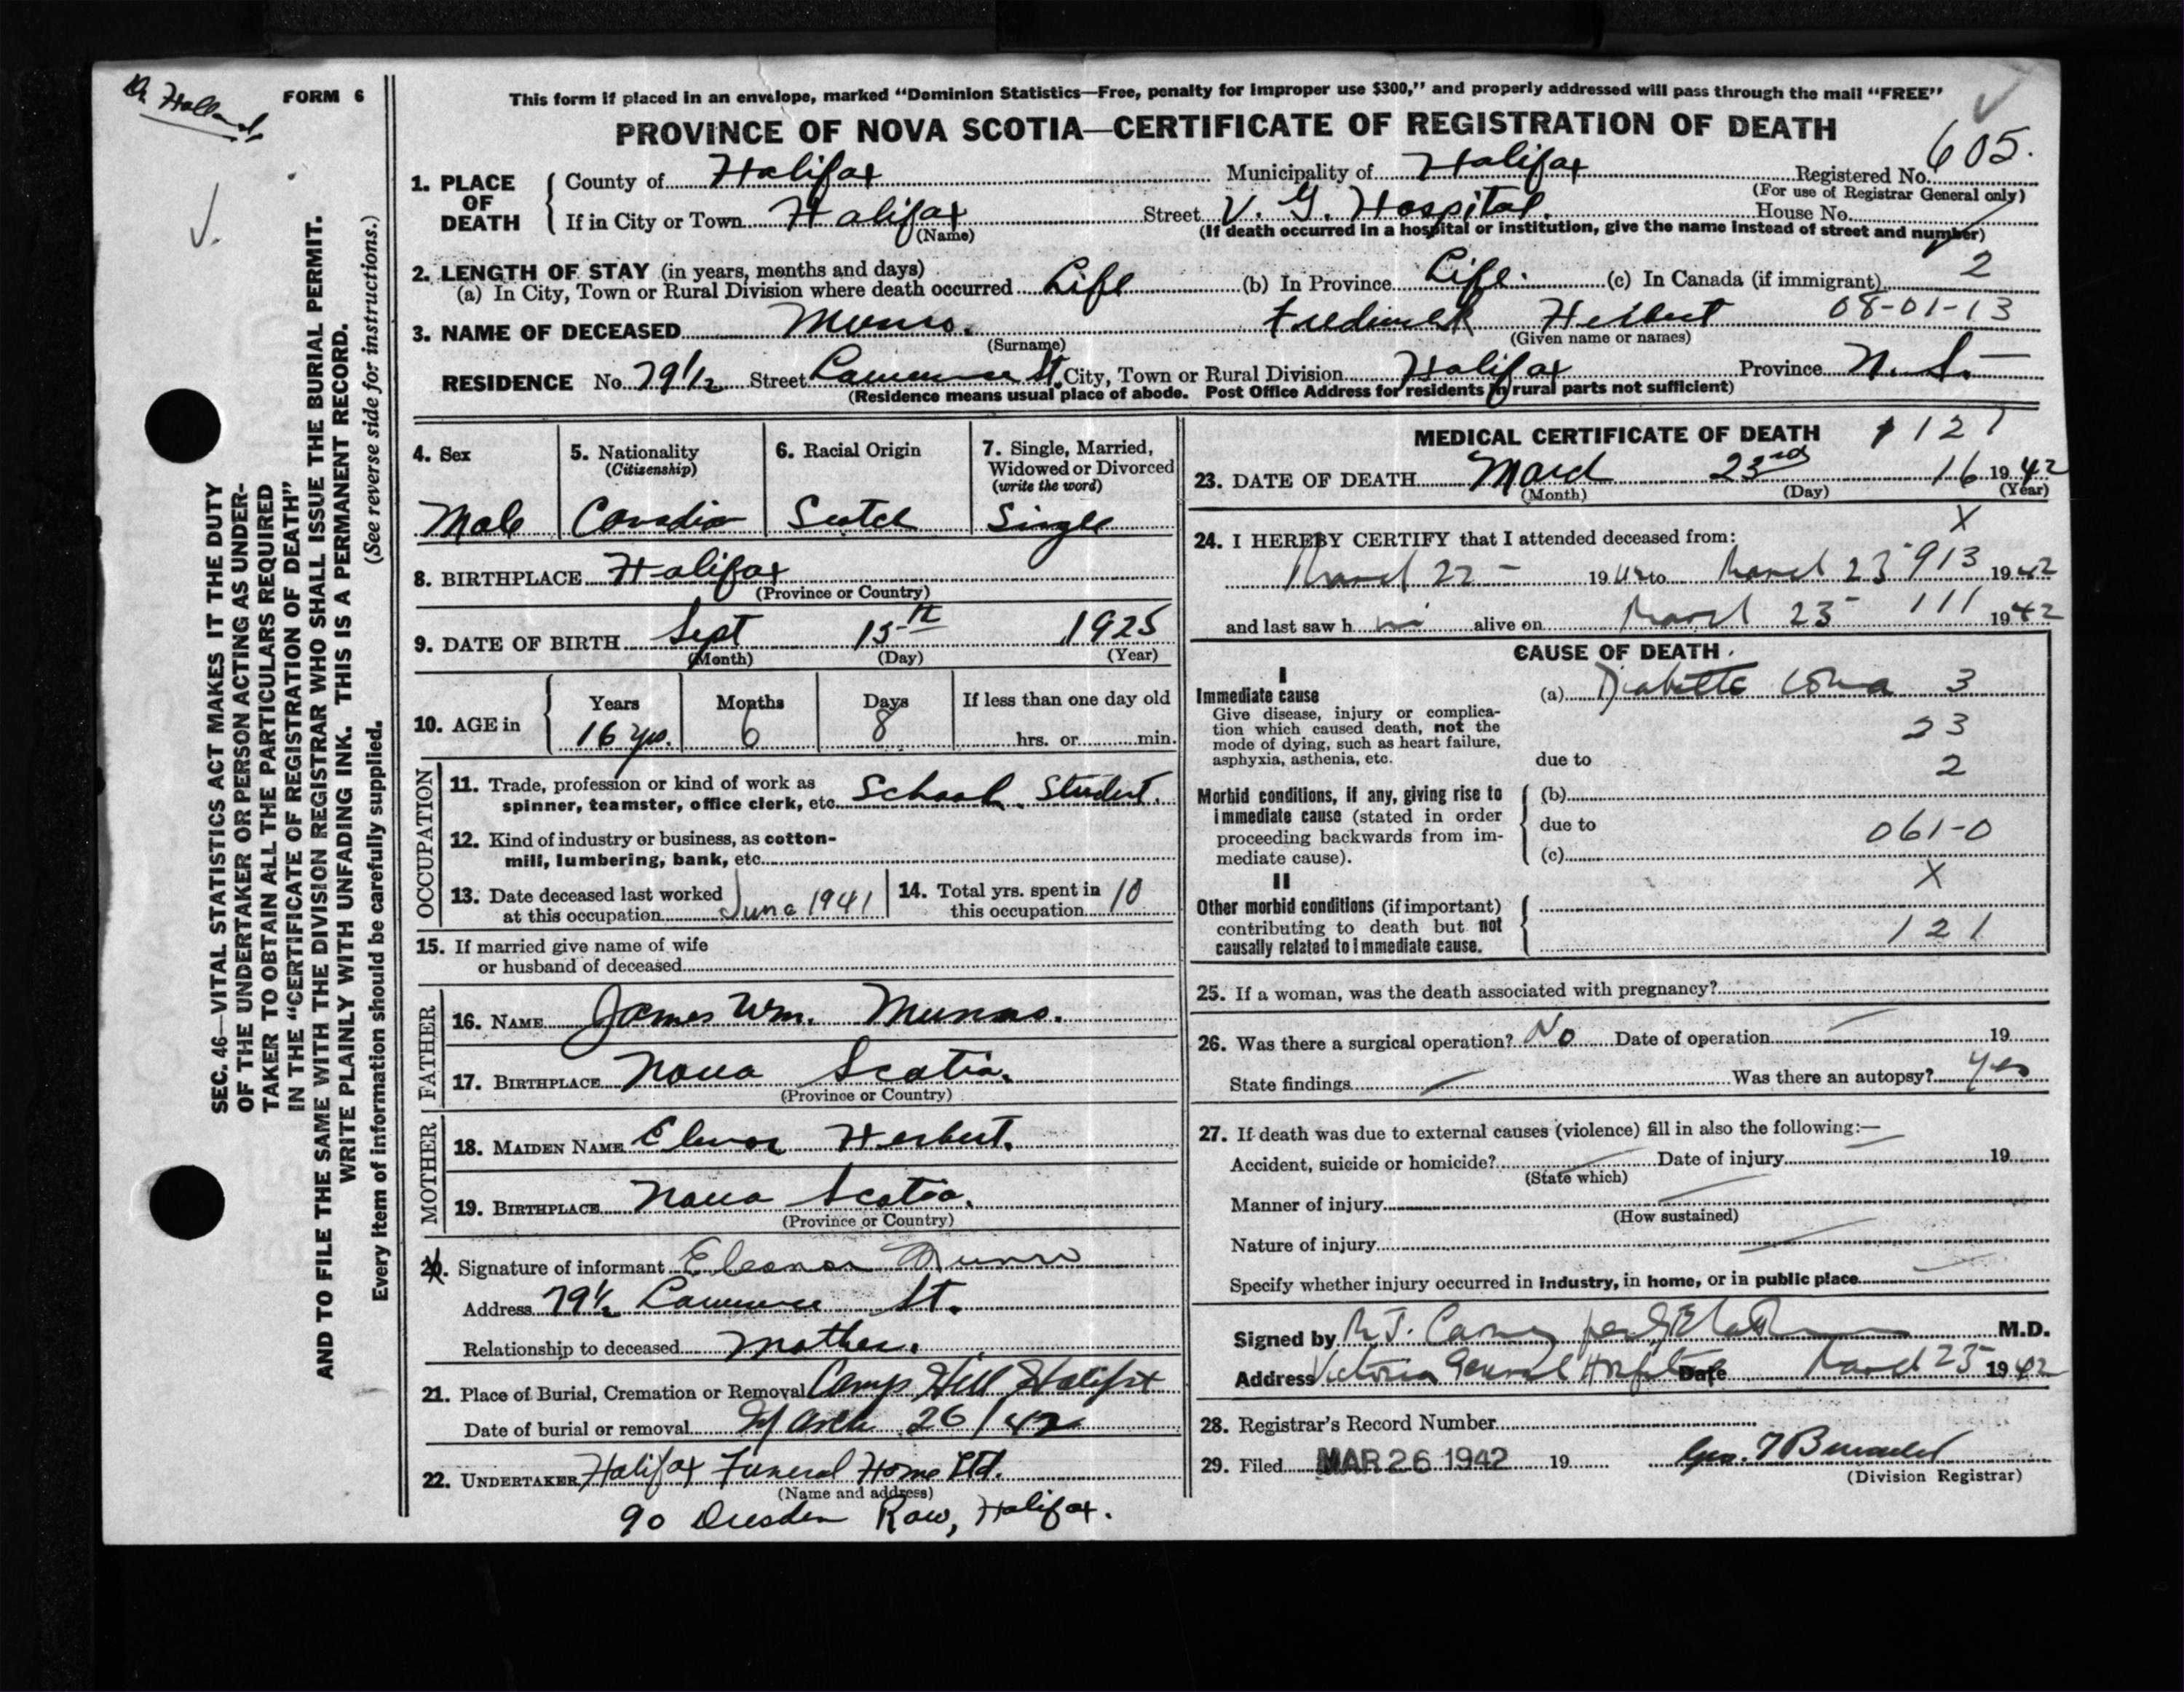 Dr. Holland
FORM 6
This form if placed in an envelope, marked “Dominion Statistics—Free, penalty for improper use $300,” and properly addressed will pass through the mail “FREE”
PROVINCE OF NOVA SCOTIA—CERTIFICATE OF REGISTRATION OF DEATH
605.
1. PLACE OF DEATH
County of Halifax Municipality of Halifax Registered No.
(For use of Registrar General only)
If in City or Town Halifax Street V. G. Hospital. House No.
(Name) (If death occurred in a hospital or institution, give the name instead of street and number)
2. LENGTH OF STAY (in years, months and days)
(a) In City, Town or Rural Division where death occurred Life (b) In Province Life. (c) In Canada (if immigrant) 2
3. NAME OF DECEASED Munro. Frederick Herbert 08-01-13
(Surname) (Given name or names)
RESIDENCE No. 79 1/2 Street Lawrence St. City, Town or Rural Division Halifax Province N. S.
(Residence means usual place of abode. Post Office Address for residents in rural parts not sufficient)
4. Sex 5. Nationality 6. Racial Origin 7. Single, Married,
(Citizenship) Widowed or Divorced
(write the word)
Male Canadian Scotch Single
8. BIRTHPLACE Halifax
(Province or Country)
9. DATE OF BIRTH Sept 15th 1925
(Month) (Day) (Year)
10. AGE in Years Months Days If less than one day old
16 yrs. 6 8 hrs. or min.
OCCUPATION
11. Trade, profession or kind of work as
spinner, teamster, office clerk, etc. School Student.
12. Kind of industry or business, as cotton-
mill, lumbering, bank, etc.
13. Date deceased last worked
at this occupation June 1941
14. Total yrs. spent in
this occupation 10
15. If married give name of wife
or husband of deceased
FATHER
16. NAME James Wm. Munro.
17. BIRTHPLACE Nova Scotia.
(Province or Country)
MOTHER
18. MAIDEN NAME Elenor Herbert.
19. BIRTHPLACE Nova Scotia.
(Province or Country)
20. Signature of informant Eleanor Munro
Address 79 1/2 Lawrence St.
Relationship to deceased Mother.
21. Place of Burial, Cremation or Removal Camp Hill Halifax
Date of burial or removal March 26/42
22. UNDERTAKER Halifax Funeral Home Ltd.
(Name and address)
90 Dresden Row, Halifax.
MEDICAL CERTIFICATE OF DEATH 121
23. DATE OF DEATH March 23rd 16 1942
(Month) (Day) (Year)
X
24. I HEREBY CERTIFY that I attended deceased from:
March 22 1942 to March 23 913 1942
and last saw him alive on March 23 111 1942
CAUSE OF DEATH.
I
Immediate cause (a) Diabetic Coma 3
Give disease, injury or complica-
tion which caused death, not the
mode of dying, such as heart failure,
asphyxia, asthenia, etc. due to
23
2
Morbid conditions, if any, giving rise to (b)
immediate cause (stated in order due to 061-0
proceeding backwards from im-
mediate cause). (c)
X
II
Other morbid conditions (if important)
contributing to death but not
causally related to immediate cause. 121
25. If a woman, was the death associated with pregnancy?
26. Was there a surgical operation? No Date of operation 19
State findings Was there an autopsy? Yes
27. If death was due to external causes (violence) fill in also the following:—
Accident, suicide or homicide? Date of injury 19
(State which)
Manner of injury
(How sustained)
Nature of injury
Specify whether injury occurred in industry, in home, or in public place
Signed by M.D.
Address Victoria General Hospital Date March 23 1942
28. Registrar's Record Number
29. Filed MAR 26 1942 19
(Division Registrar)
SEC. 46—VITAL STATISTICS ACT MAKES IT THE DUTY
OF THE UNDERTAKER OR PERSON ACTING AS UNDER-
TAKER TO OBTAIN ALL THE PARTICULARS REQUIRED
IN THE “CERTIFICATE OF REGISTRATION OF DEATH”
AND TO FILE THE SAME WITH THE DIVISION REGISTRAR WHO SHALL ISSUE THE BURIAL PERMIT.
WRITE PLAINLY WITH UNFADING INK. THIS IS A PERMANENT RECORD.
Every item of information should be carefully supplied. (See reverse side for instructions.)